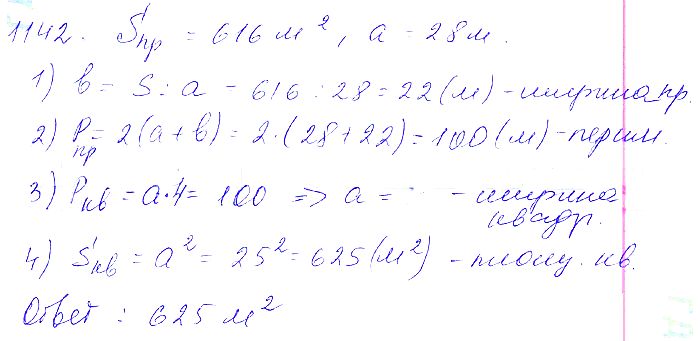 1142. Sпр = 616 м², a = 28 м.
1) b = S : a = 616 : 28 = 22 (м) - ширина пр.
2) Pпр = 2(a + b) = 2·(28 + 22) = 100 (м) - перим.
3) Pкв = a·4 = 100 => a = - ширина
квадр.
4) Sкв = a² = 25² = 625 (м²) - площ. кв.
Ответ : 625 м²